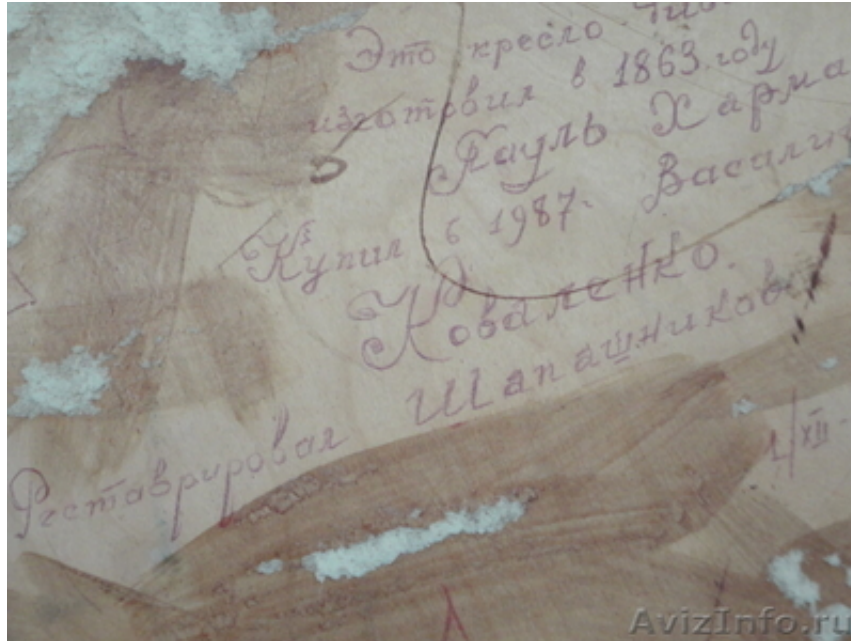 Это кресло
изготовил в 1863 году
Пауль Харма
Купил в 1987. Василий
Коваленко.
Реставрировал Шапашников
1/XII-
AvizInfo.ru